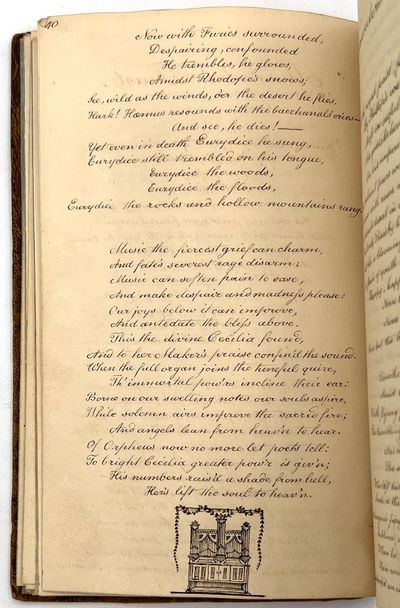 40
Now with Furies surrounded,
Despairing, confounded
He trembles, he glows,
Amidst Rhodope's snows;
See, wild as the winds, o'er the desert he flies,
Hark! Hæmus resounds with the bacchanals' cries—
And see, he dies!—
Yet even in death Eurydice he sung,
Eurydice still trembled on his tongue,
Eurydice the woods,
Eurydice the floods,
Eurydice the rocks and hollow mountains rung.
Music the fiercest grief can charm,
And fate's severest rage disarm;
Music can soften pain to ease,
And make despair and madneſs please:
Our joys below it can improve,
And antedate the bliſs above.
This the divine Cecilia found,
And to her Maker's praise confin'd the sound.
When the full organ joins the tuneful quire,
Th' immortal pow'rs incline their ear:
Borne on our swelling notes our souls aspire,
While solemn airs improve the sacred fire;
And angels lean from heav'n to hear.
Of Orpheus now no more let poets tell:
To bright Cecilia greater pow'r is giv'n;
His numbers rais'd a shade from hell,
Hers lift the soul to heav'n.